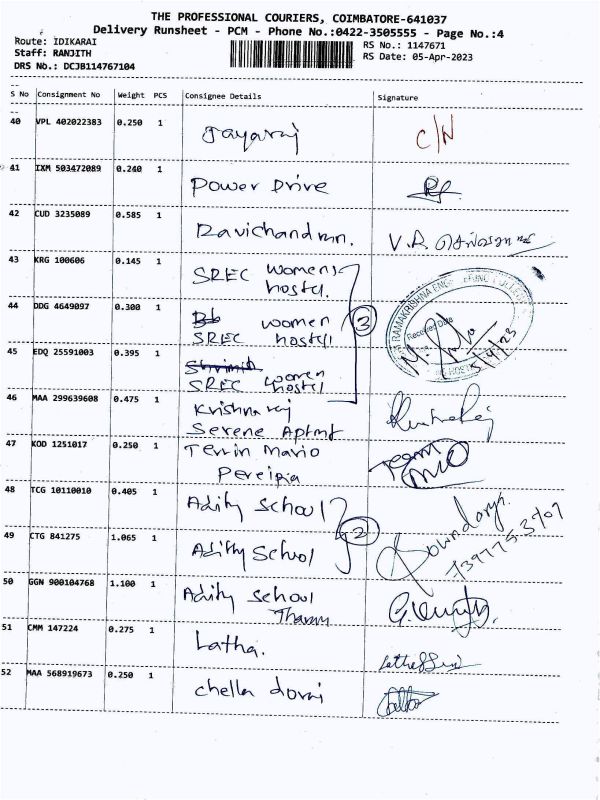 THE PROFESSIONAL COURIERS, COIMBATORE-641037
Delivery Runsheet - PCM - Phone No.:0422-3505555 - Page No.:4
Route: IDIKARAI
RS No.: 1147671
Staff: RANJITH
RS Date: 05-Apr-2023
DRS No.: DCJB114767104
S No Consignment No Weight PCS Consignee Details Signature
40 VPL 402022383 0.250 1 Jayaraj C/N
41 IXM 503472089 0.240 1 Power Drive
42 CUD 3235089 0.585 1 Ravichandran. V.R.
43 KRG 100606 0.145 1 SREC womens
hostel.
44 DDG 4649097 0.300 1 women
SREC hostel
3
Received Date
5/4/23
45 EDQ 25591003 0.395 1
SREC women
hostel
46 MAA 299639608 0.475 1 Krishna raj
Serene Aptmt
47 KOD 1251017 0.250 1 Terrin Mario
Pereipia
48 TCG 10110010 0.405 1 Adity school
2
49 CTG 841275 1.065 1 Adithy School
50 GGN 900104768 1.100 1 Adity school
Tharun
51 CMM 147224 0.275 1 Latha.
52 MAA 568919673 0.250 1 chella dorai